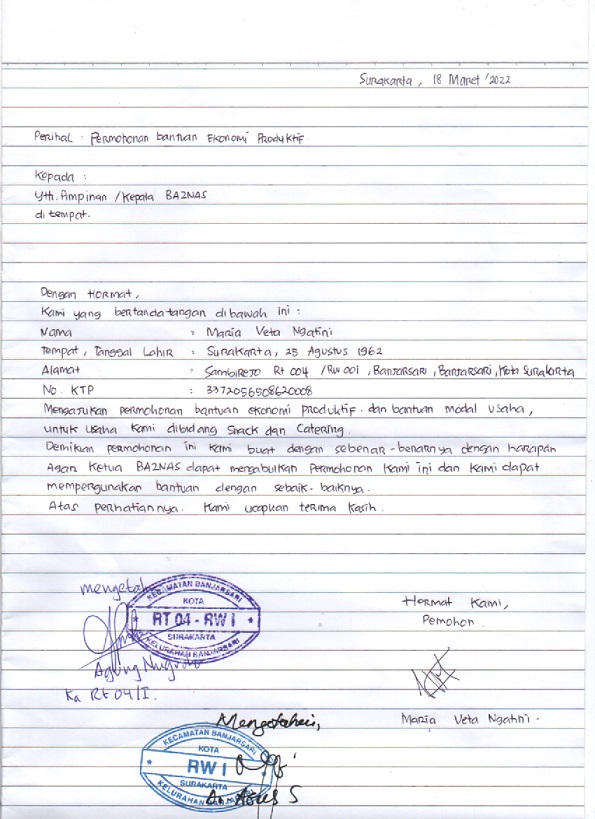 Surakarta, 18 Maret '2022
Perihal : Permohonan bantuan Ekonomi Produktif
Kepada :
Yth. Pimpinan / Kepala BAZNAS
di tempat.
Dengan Hormat,
Kami yang bertanda tangan dibawah ini :
Nama : Maria Veta Ngatini
Tempat, Tanggal Lahir : Surakarta, 25 Agustus 1962
Alamat : Sambirejo Rt 004 / Rw 001, Banjarsari, Banjarsari, Kota Surakarta
No. KTP : 3372056508620008
Mengajukan permohonan bantuan ekonomi produktif dan bantuan modal usaha,
untuk usaha kami dibidang Snack dan Catering.
Demikian permohonan ini kami buat dengan sebenar-benarnya dengan harapan
Agar Ketua BAZNAS dapat mengabulkan Permohonan kami ini dan kami dapat
mempergunakan bantuan dengan sebaik-baiknya.
Atas perhatiannya. Kami ucapkan terima kasih.
Hormat Kami,
Pemohon.
Maria Veta Ngatini.
KECAMATAN BANJARSARI
KOTA
RT 04 - RW I
SURAKARTA
KELURAHAN BANJARSARI
Agung
Ka Rt 04/I.
Mengetahui,
KECAMATAN BANJARSARI
KOTA
RW I
SURAKARTA
KELURAHAN BANJARSARI
Agus S